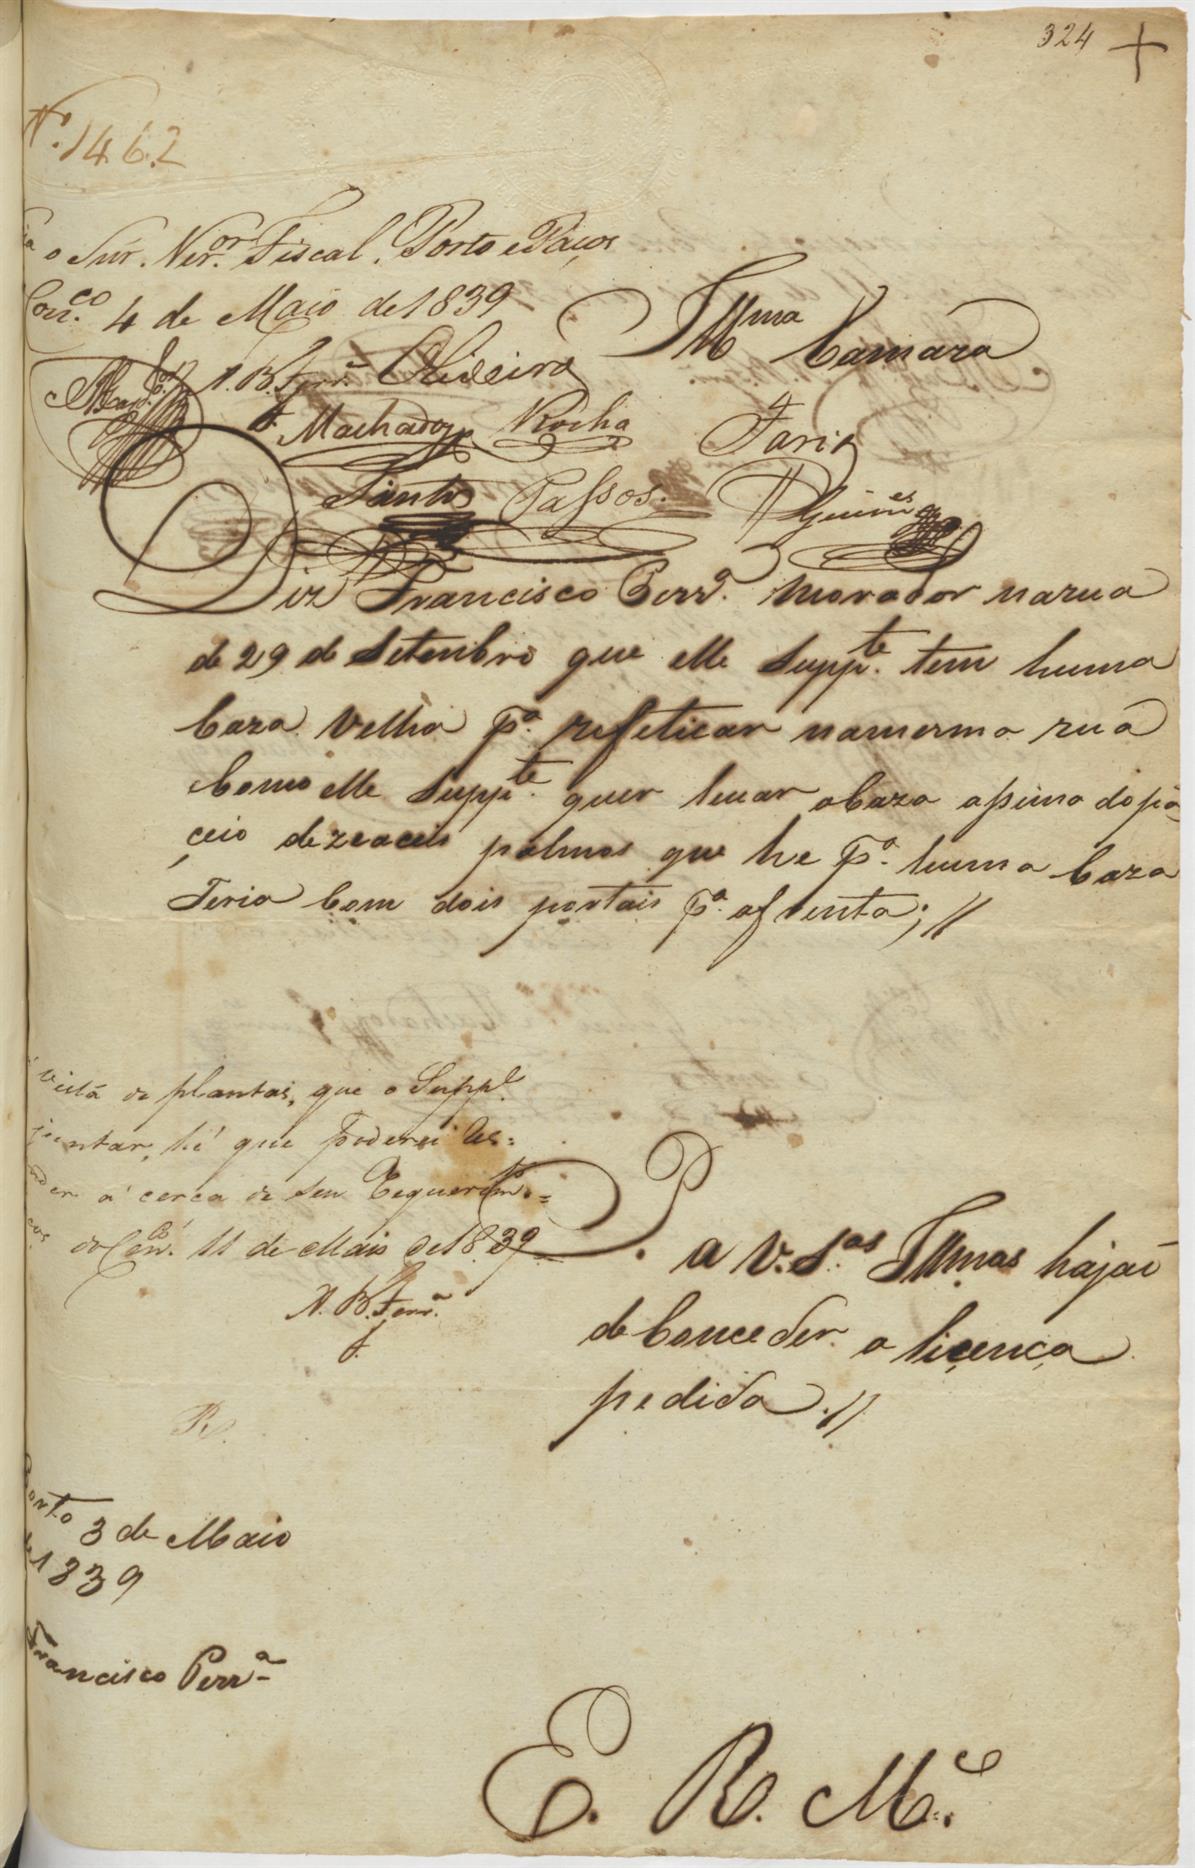 324
Nº. 1462
o Snr. Ver.or Fiscal. Porto e Paços
Conc.o 4 de Maio de 1839
Illma Camara
N. B. Ferr.a Oliveira
Machado Rocha Faria
Santos Passos. Guim.es
Diz Francisco Perr.a morador narua
de 29 de Setenbro que elle Supp.te tem huma
Caza velha p.a refeticar namesma rua
Como elle Supp.te quer levar aCaza assima dopa
ceio dezaceis palmos que he p.a huma Caza
Teria Com dois portais p.a afrenta; //
vista da planta, que o Supp.e
juntar, hé que poderei Res=
á cerca de seu Requerim.to=
do Con.co 11 de Maio de 1839
N. B. Ferr.a
P. a V. S.as Illmas hajaõ
de Conceder a liçença
pedida. //
R.
Porto 3 de Maio
de 1839
Francisco Perr.a
E. R. M.ce